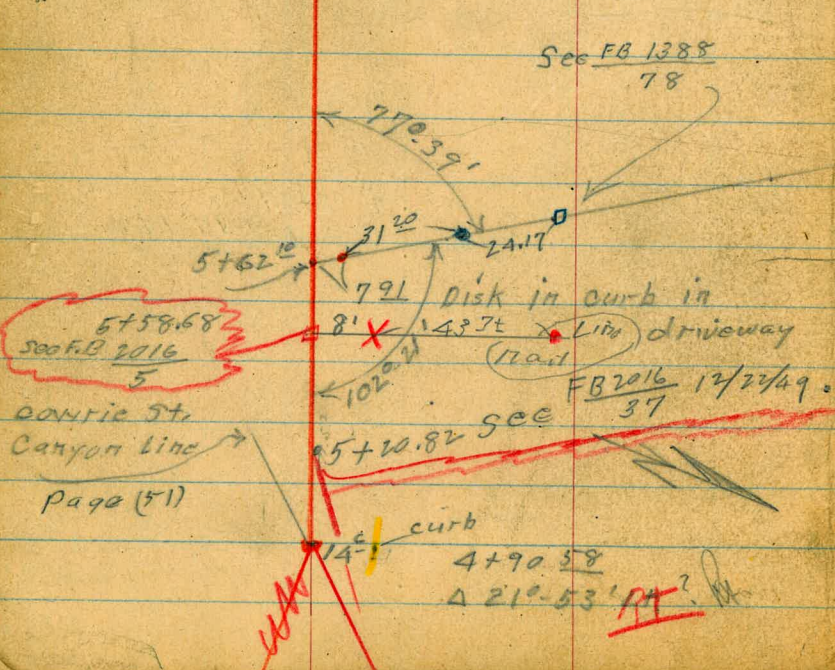 See FB 1388
78
77°.39'
31 20
24.17
5+62 10
7 91
Disk in curb in
driveway
5+58.68
See F.B 2016
5
8'
43 7t
Line
(nail
102°.21'
FB 2016 12/22/49.
37
See
5+20.82
cowrie St.
Canyon Line
Page (51)
curb
14
4+90 58
Δ 21°-53'